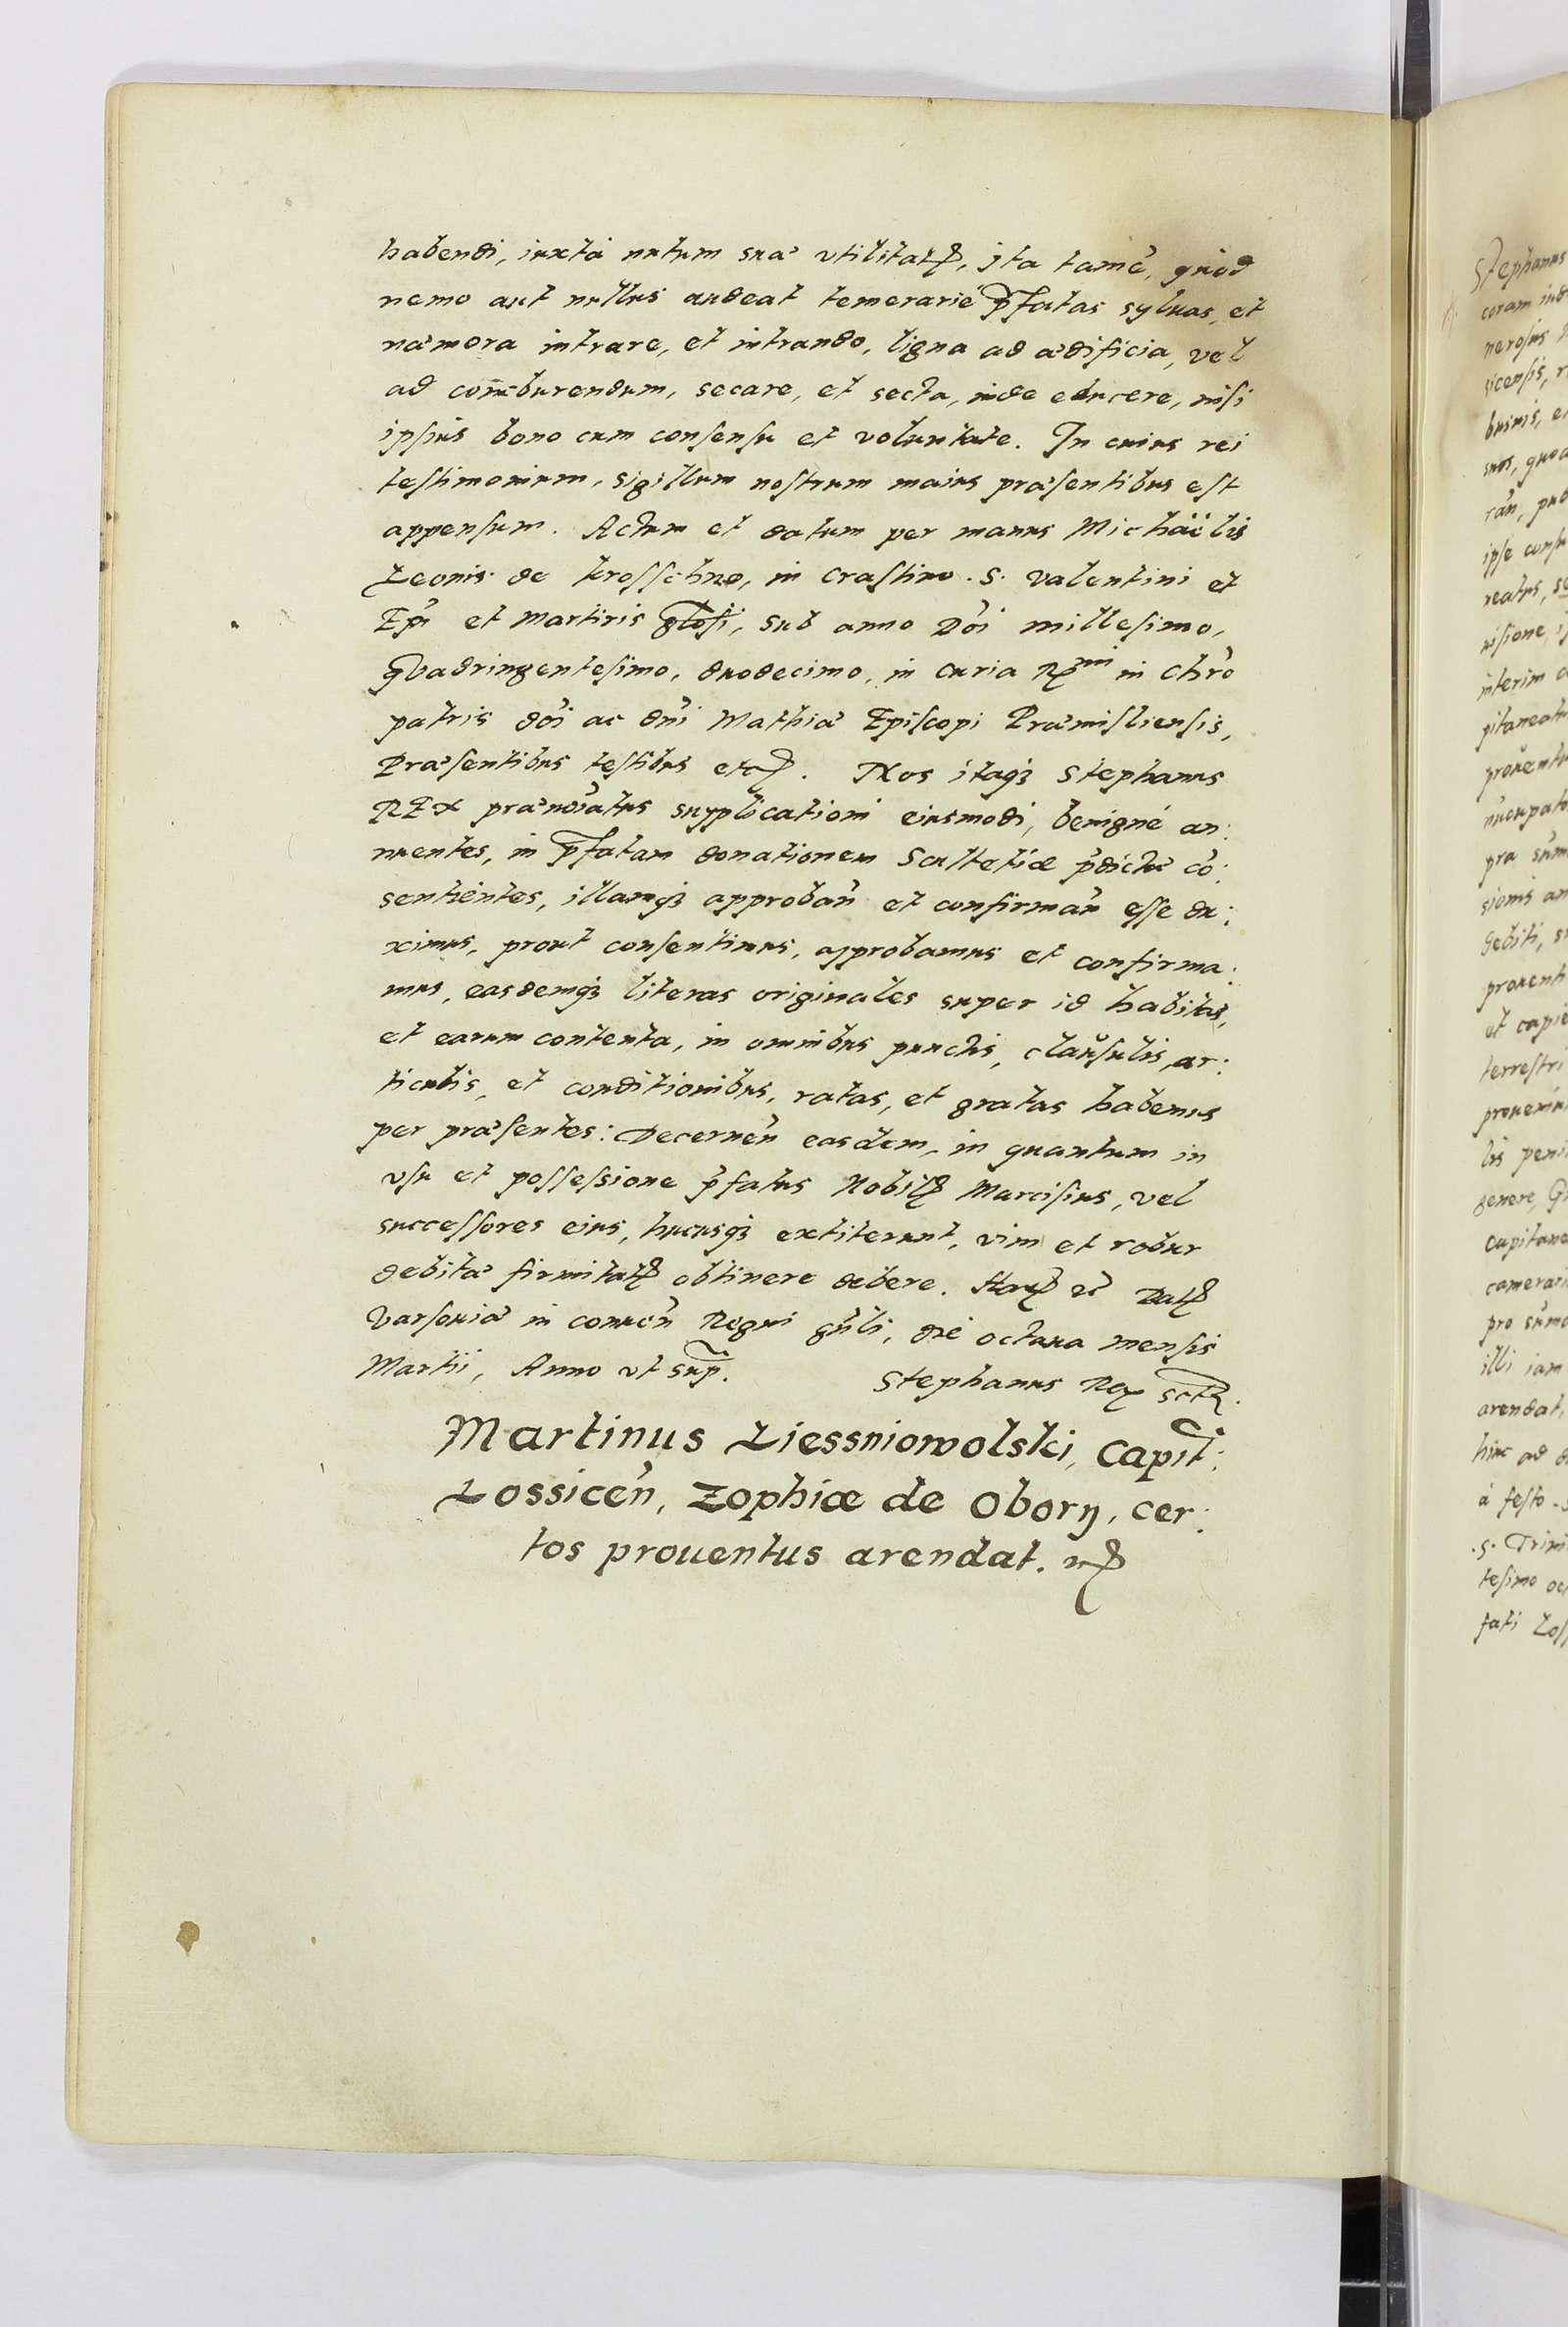 habendi, iuxtà nutum suæ vtilitatꝭ, jta tamẽ, quod
nemo aut nullus audeat temerariè p̃fatas syluas, et
næmora intrare, et intrando, ligna ad ædificia, vel
ad comburendum, secare, et secta, inde educere, nisi
ipsius bono cum consensu et voluntate. In cuius rei
testimonium, sigillum nostrum maius præsentibus est
appensum. Actum et datum per manus Michaëlis
Leonis de krosschno, in crastino .S. Valentini et
Ep̃i et Martiris gl̃osi, sub anno Dõi millesimo,
Quadringentesimo, duodecimo, in curia Rꝭmi in Chr̃o
patris dõi ac dñi Mathiæ Episcopi Præmisliensis,
Præsentibus testibus etcꝭ. Nos itaqꝫ Stephanus
REX prænoĩatus supplicationi eiusmodi, benignè an:
nuentes, in p̃fatam donationem Scultetiæ p̃dictæ cõ:
sentientes, illamqꝫ approbañ et confirmañ esse du:
ximus, prout consentimus, approbamus et confirma:
mus, easdemqꝫ literas originales super id habitas,
et earum contenta, in omnibus punctis, clausulis, ar:
ticulis, et conditionibus, ratas, et gratas habemus
per præsentes: Decerneñ easdem, in quantum in
vsu et possessione p̃fatus Nobilꝭ Marcisius, vel
successores eius, hucusqꝫ extiterunt, vim et robur
debitæ firmitatꝭ obtinere debere. Harꝭ rc̃ Datꝭ
Varsouiæ in conueñ Regni gñli, die octaua mensis
Martii, Anno vt sup̃. Stephanus Rex sctꝫ.
Martinus Liessniowolski, capit̃:
Lossiceñ, Zophiæ de Obory, cer:
tos prouentus arendat. rꝭ
Stephanus
coram
nerosus
sicensis,
buinis,
suos,
rañ,
ipse
reatus,
uisione,
interim
pitaneatu
prouentu
pra sum
sionis an
debiti,
prouent
et capie
terrestri
lis
genere,
capitane
camerari
pro sum
illi iam
arendat,
hinc ad
à festo .S
.S. Trini
tesimo oc
fati Los